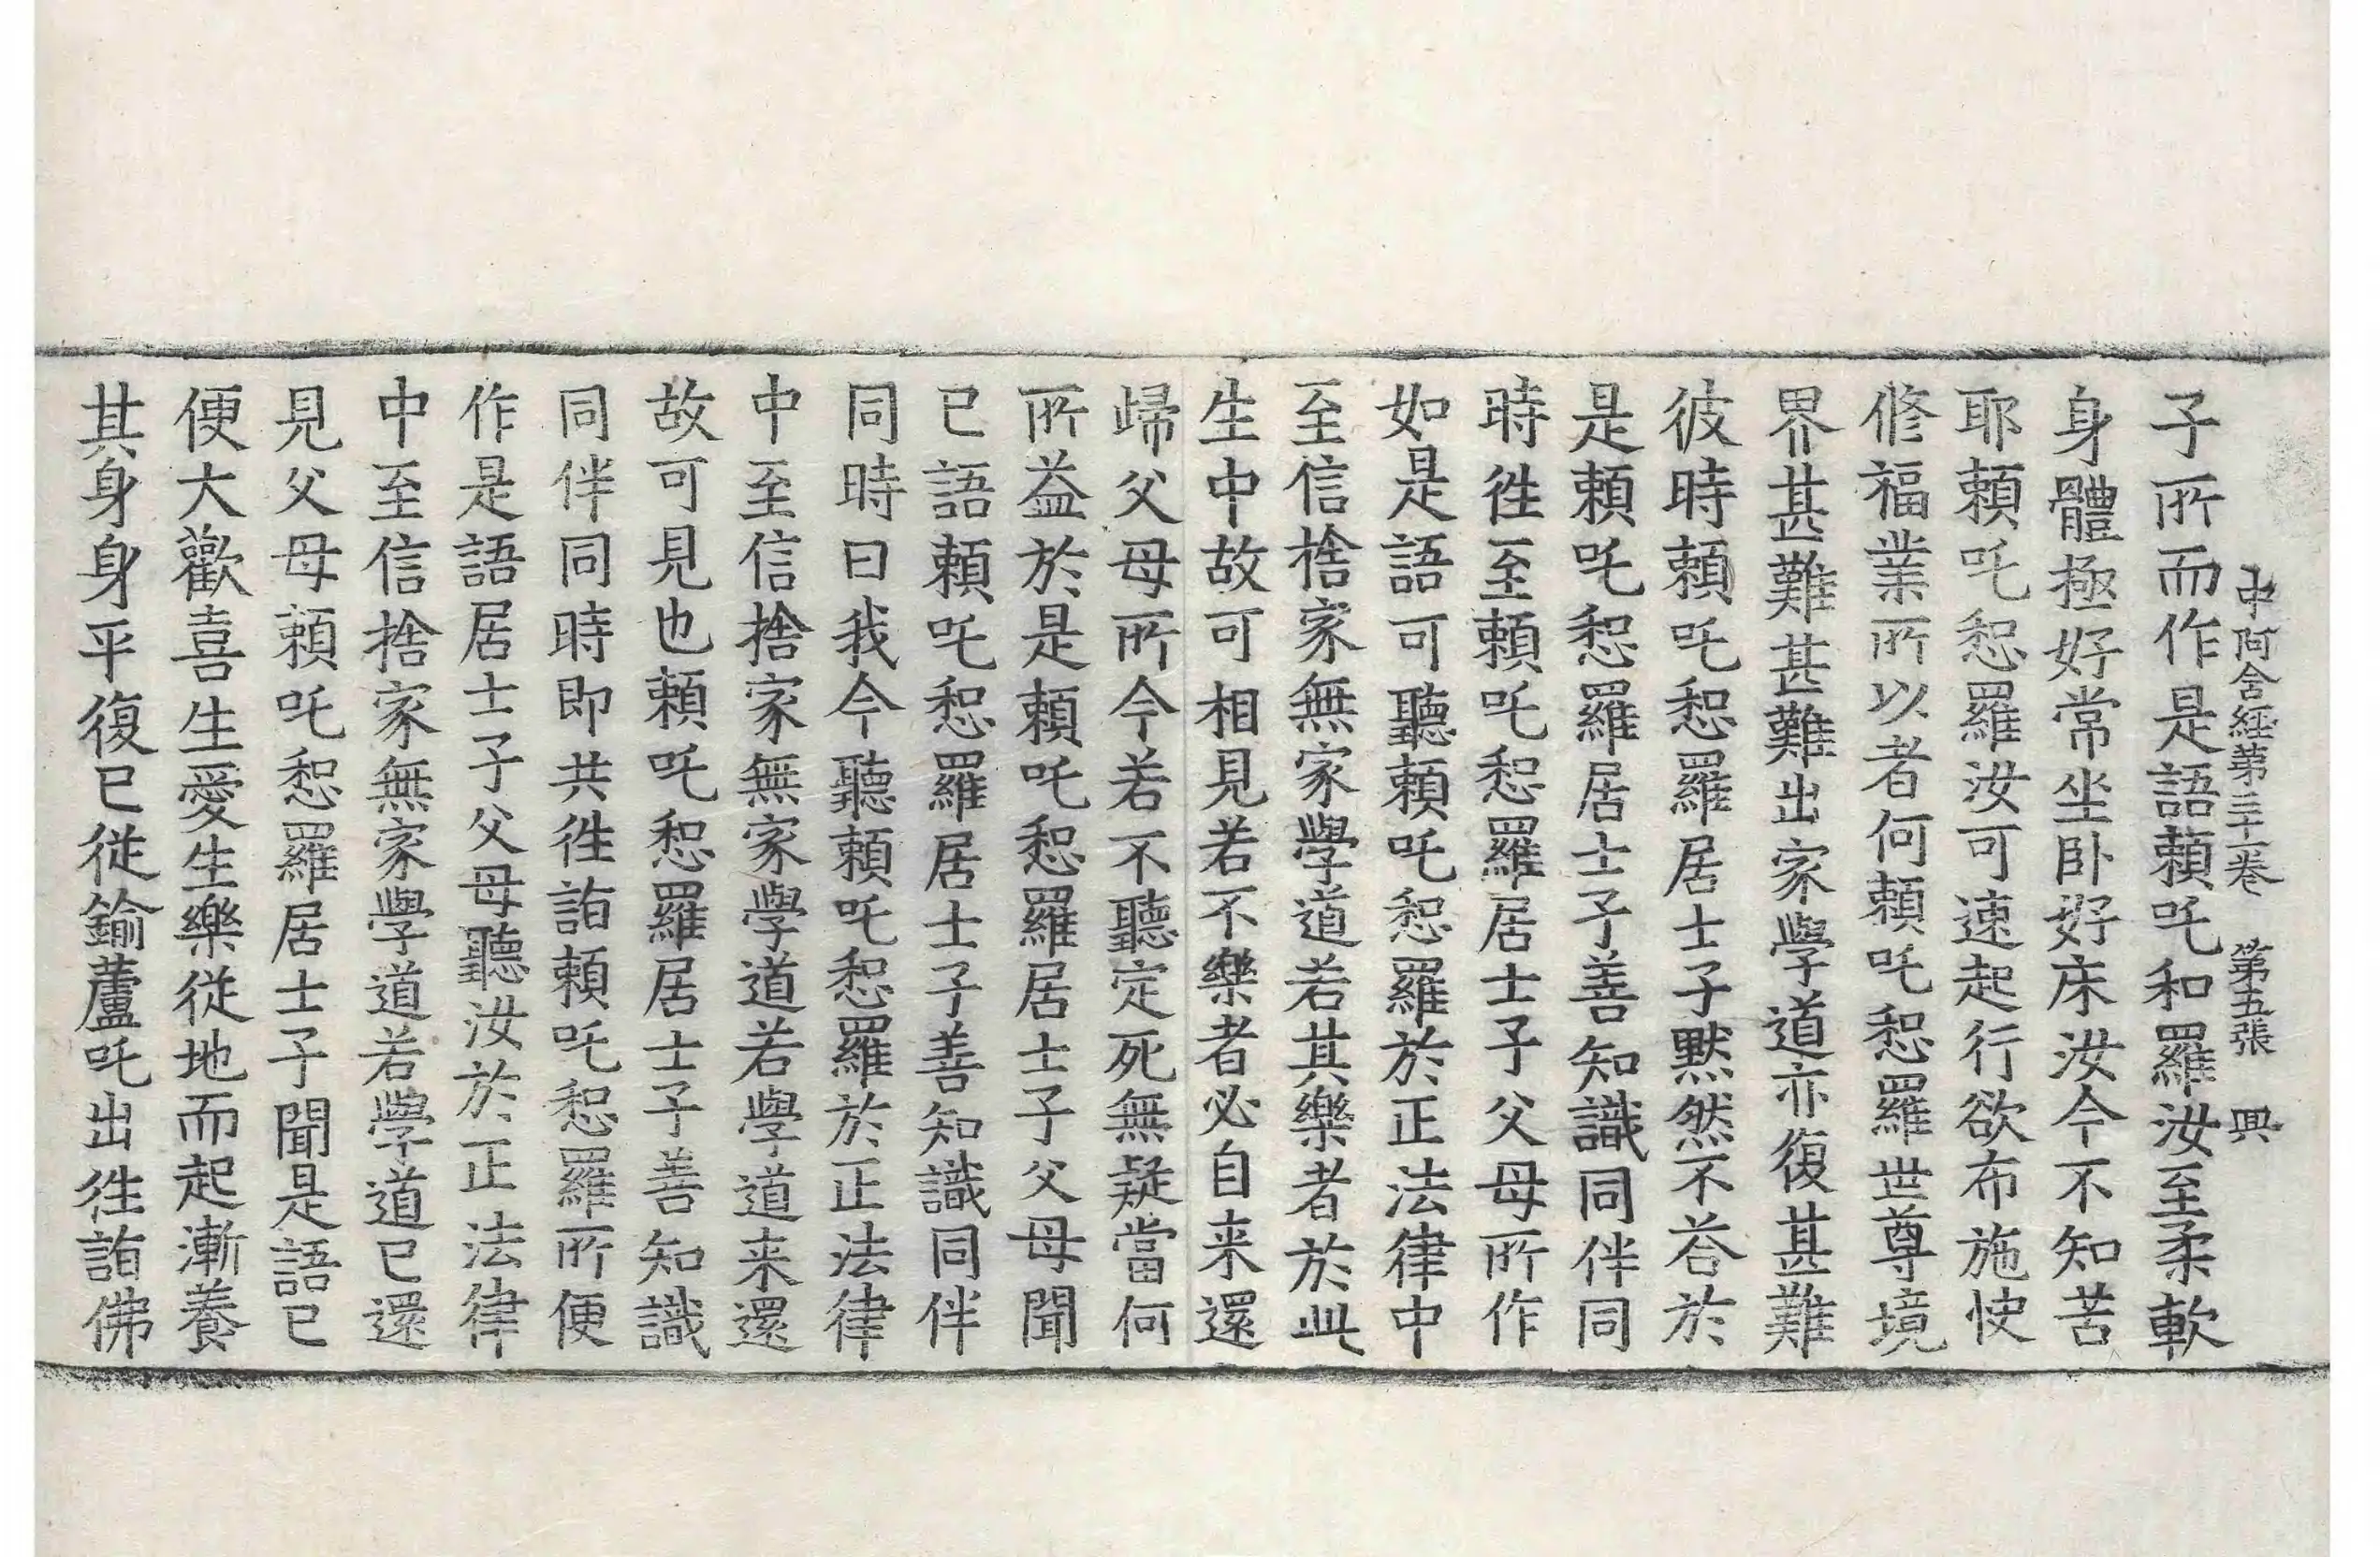 中阿含經第三十一卷 第五張 興
子所而作是語賴吒和羅汝至柔軟
身體極好常坐卧好床汝今不知苦
耶賴吒惒羅汝可速起行欲布施快
修福業所以者何賴吒惒羅世尊境
界甚難甚難出家學道亦復甚難
彼時賴吒惒羅居士子默然不荅於
是賴吒惒羅居士子善知識同伴同
時徃至賴吒惒羅居士子父母所作
如是語可聽賴吒惒羅於正法律中
至信捨家無家學道若其樂者於此
生中故可相見若不樂者必自来還
歸父母所今若不聽定死無疑當何
所益於是賴吒惒羅居士子父母聞
已語賴吒惒羅居士子善知識同伴
同時曰我今聽賴吒惒羅於正法律
中至信捨家無家學道若學道来還
故可見也賴吒惒羅居士子善知識
同伴同時即共徃詣賴吒惒羅所便
作是語居士子父母聽汝於正法律
中至信捨家無家學道若學道已還
見父母賴吒惒羅居士子聞是語已
便大歡喜生愛生樂從地而起漸養
其身身平復已從鍮蘆吒出徃詣佛